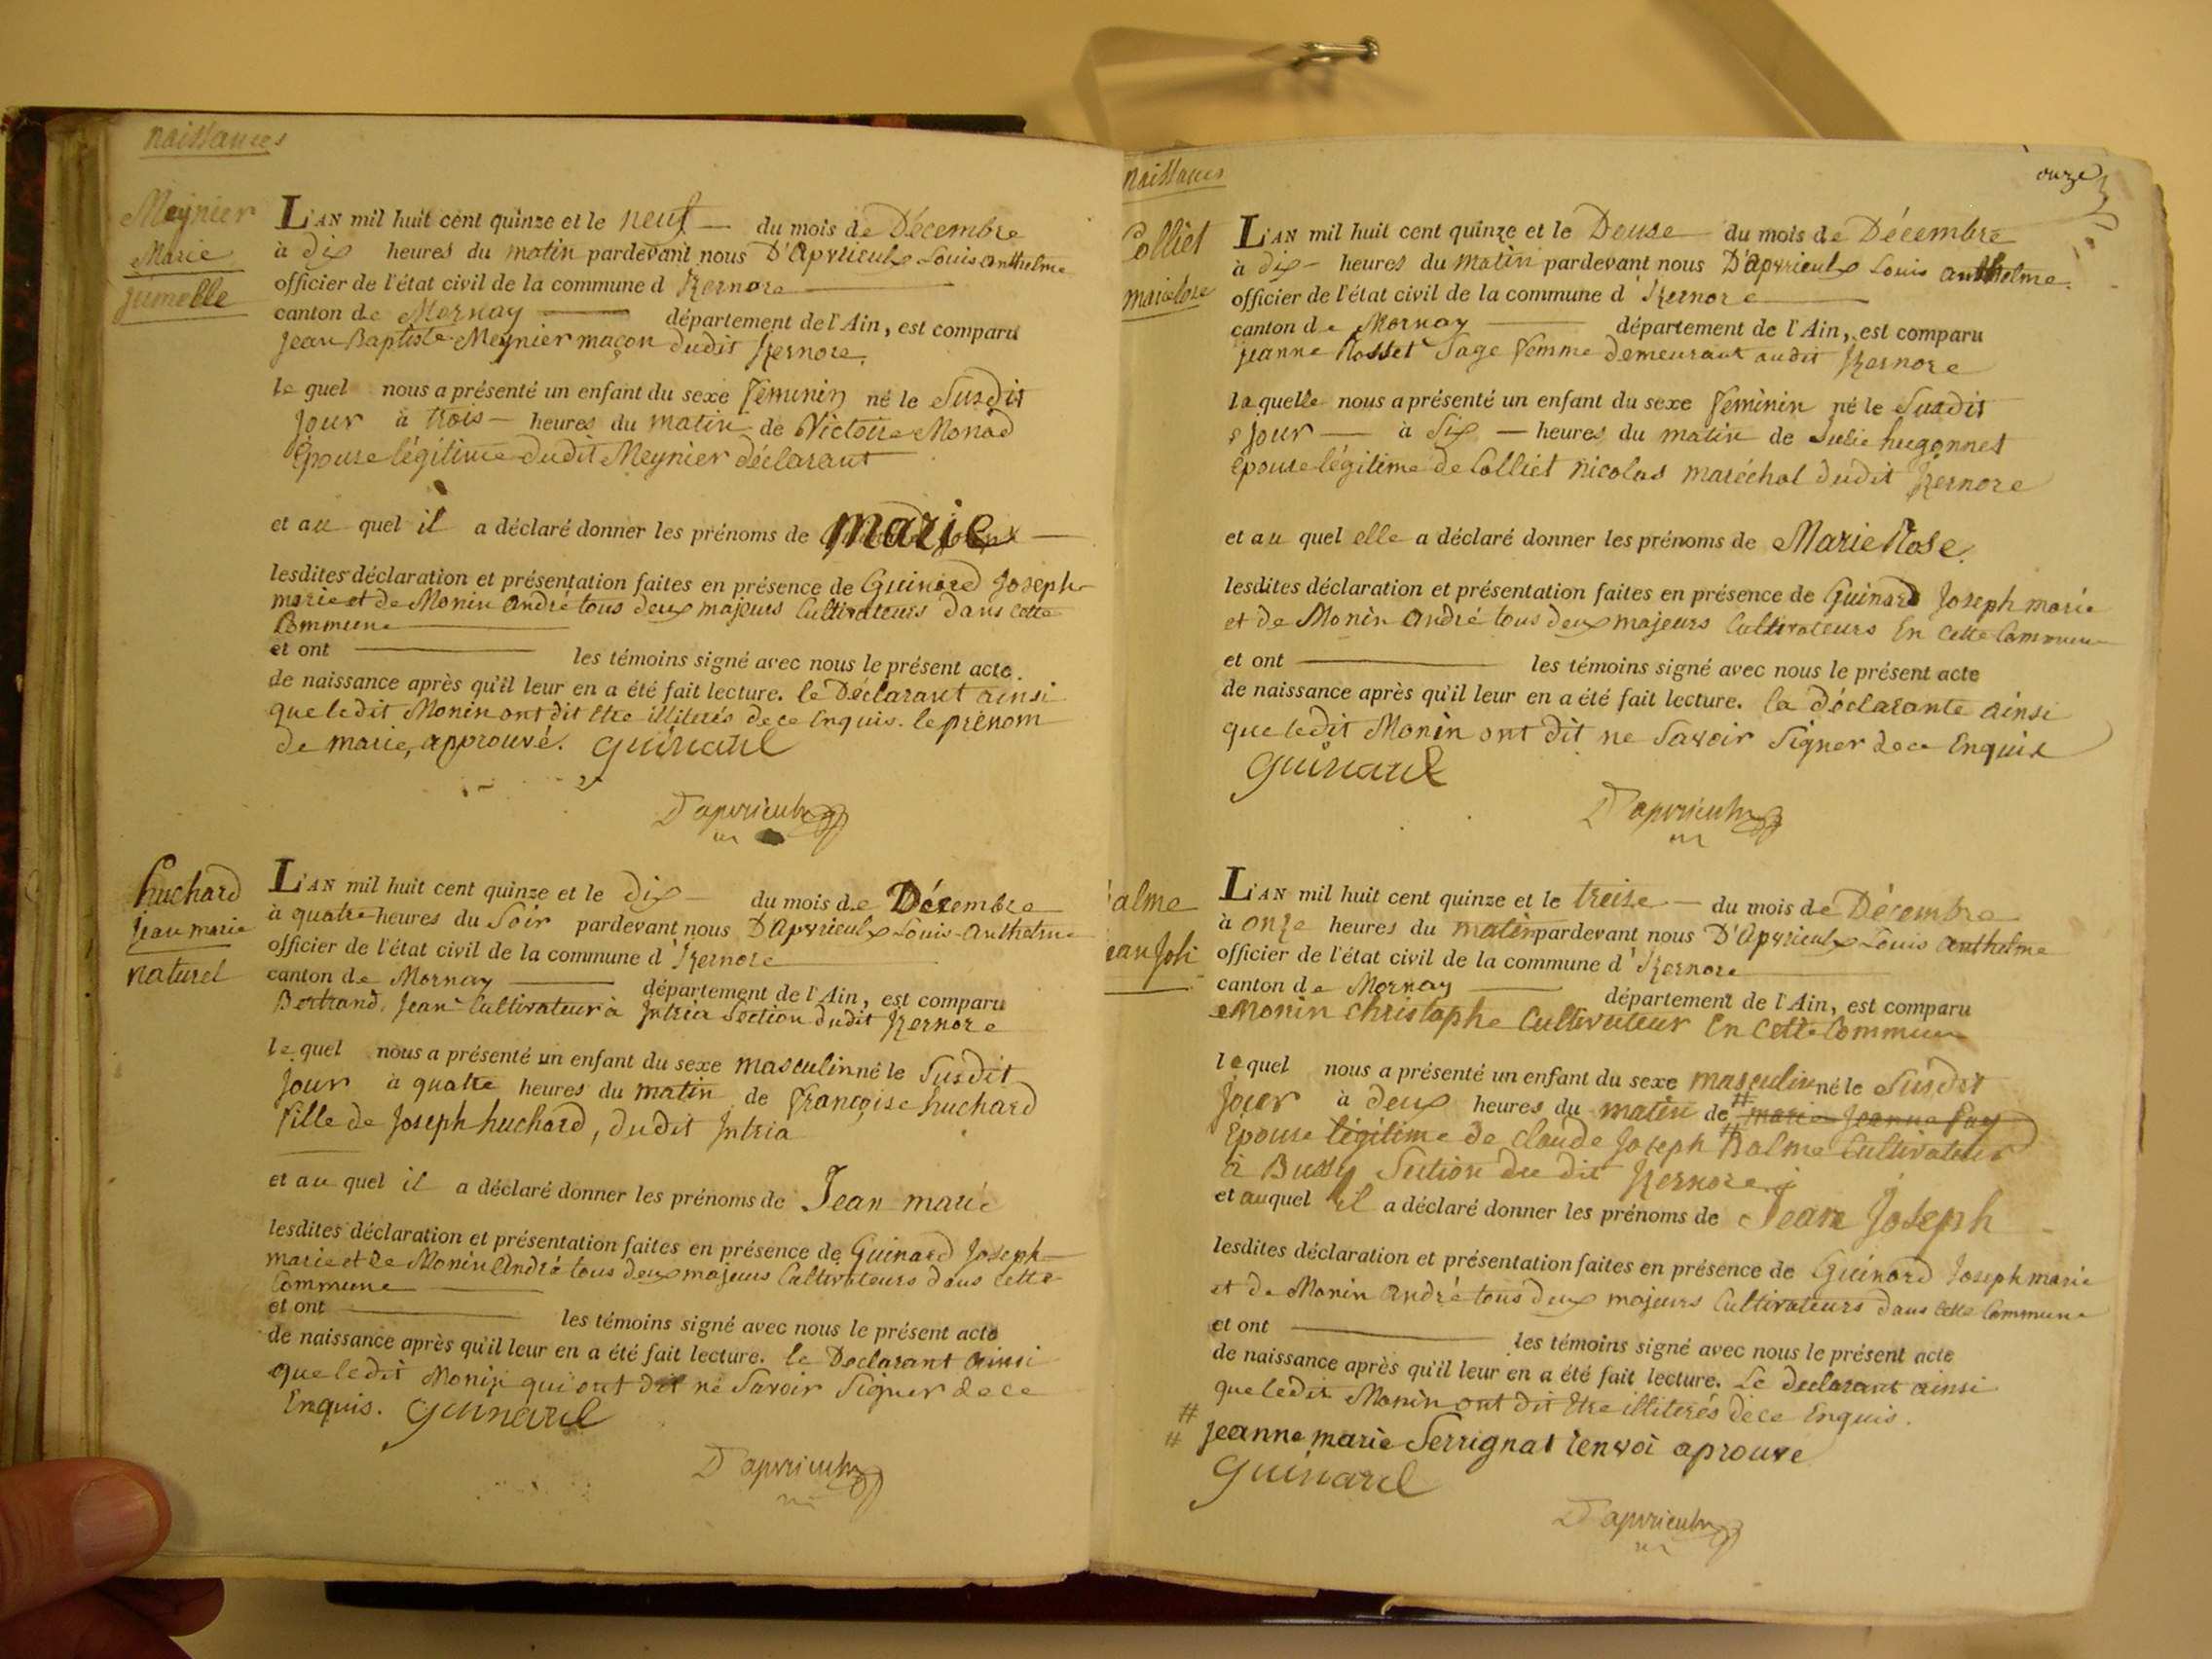 naissances
Meynier
Marie
jumelle
L'AN mil huit cent quinze et le neuf — du mois de Décembre
à dix heures du matin pardevant nous D'Apvrieulx Louis anthelme
officier de l'état civil de la commune d'Izernore
canton de Mornay département de l'Ain, est comparu
Jean Baptiste Meynier maçon dudit Izernore.
le quel nous a présenté un enfant du sexe féminin né le Susdit
jour à trois — heures du matin de Victoire Monod
Epouse légitime dudit Meynier déclarant
et au quel il a déclaré donner les prénoms de marie
lesdites déclaration et présentation faites en présence de Guinard Joseph
marie et de Monin André tous deux majeurs Cultivateurs dans cette
Commune
et ont les témoins signé avec nous le présent acte.
de naissance après qu'il leur en a été fait lecture. le Déclarant ainsi
que ledit Monin ont dit être illiterés de ce Enquis. le prénom
de marie, approuvé. Guinard
D'apvrieulx
huchard
jean marie
naturel
L'AN mil huit cent quinze et le dix — du mois de Décembre
à quatre heures du Soir pardevant nous D'Apvrieulx Louis Anthelme
officier de l'état civil de la commune d'Izernore
canton de Mornay département de l'Ain, est comparu
Bertrand, Jean Cultivateur à Intria Section dudit Izernore
le quel nous a présenté un enfant du sexe masculin né le Susdit
Jour à quatre heures du matin de Françoise huchard
fille de Joseph huchard, dudit Intria
et au quel il a déclaré donner les prénoms de Jean marie
lesdites déclaration et présentation faites en présence de Guinard Joseph
marie et de Monin André tous deux majeurs Cultivateurs dans cette
Commune
et ont les témoins signé avec nous le présent acte
de naissance après qu'il leur en a été fait lecture. le Declarant ainsi
que ledit Monin qui ont dit ne Savoir Signer de ce
Enquis. Guinard
D'apvrieulx
naissances
onze
Colliet
marie Rose
L'AN mil huit cent quinze et le Douse du mois de Décembre
à dix — heures du matin pardevant nous D'apvrieulx Louis anthelme.
officier de l'état civil de la commune d'Izernore
canton de Mornay département de l'Ain, est comparu
jeanne Rosset Sage femme demeurant audit Izernore
laquelle nous a présenté un enfant du sexe féminin né le Susdit
jour — à Six — heures du matin de Julie hugonnet
Epouse légitime de Colliet Nicolas maréchal dudit Izernore
et au quel elle a déclaré donner les prénoms de Marie Rose.
lesdites déclaration et présentation faites en présence de Guinard Joseph marie
et de Monin André tous deux majeurs Cultivateurs En cette Commune
et ont les témoins signé avec nous le présent acte
de naissance après qu'il leur en a été fait lecture. la déclarante ainsi
que ledit Monin ont dit ne Savoir Signer de ce Enquis
Guinard
D'apvrieulx
alme
ean Jose
L'AN mil huit cent quinze et le treise — du mois de Décembre
à onze heures du matin pardevant nous D'Apvrieulx Louis anthelme
officier de l'état civil de la commune d'Izernore
canton de Mornay département de l'Ain, est comparu
Monin Christophe Cultivateur En Cette Commune
lequel nous a présenté un enfant du sexe masculin né le Susdit
jour à deux heures du matin de # marie Jeanne Puy
Epouse légitime de Claude Joseph # Balme Cultivateur
à Bussy Section du dit Izernore
et auquel il a déclaré donner les prénoms de Jean Joseph
lesdites déclaration et présentation faites en présence de Guinard Joseph marie
et de Monin André tous deux majeurs Cultivateurs dans cette Commune
et ont les témoins signé avec nous le présent acte
de naissance après qu'il leur en a été fait lecture. Le declarant ainsi
que ledit Monin ont dit Etre illiterés de ce Enquis.
# # jeanne marie Serrignat renvoi aprouve
Guinard
D'apvrieulx